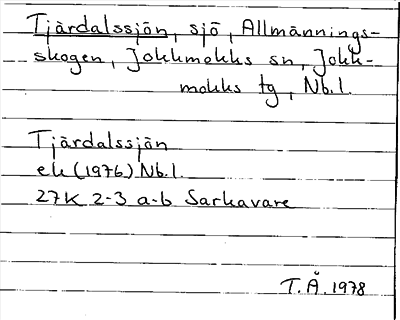 Tjärdalssjön, sjö, Allmännings-
skogen, Jokkmokks sn, Jokk-
mokks tg, Nb.l.
Tjärdalssjön
ek (1976) Nb.l.
27K 2-3 a-b Sarkavare
T.Å. 1978